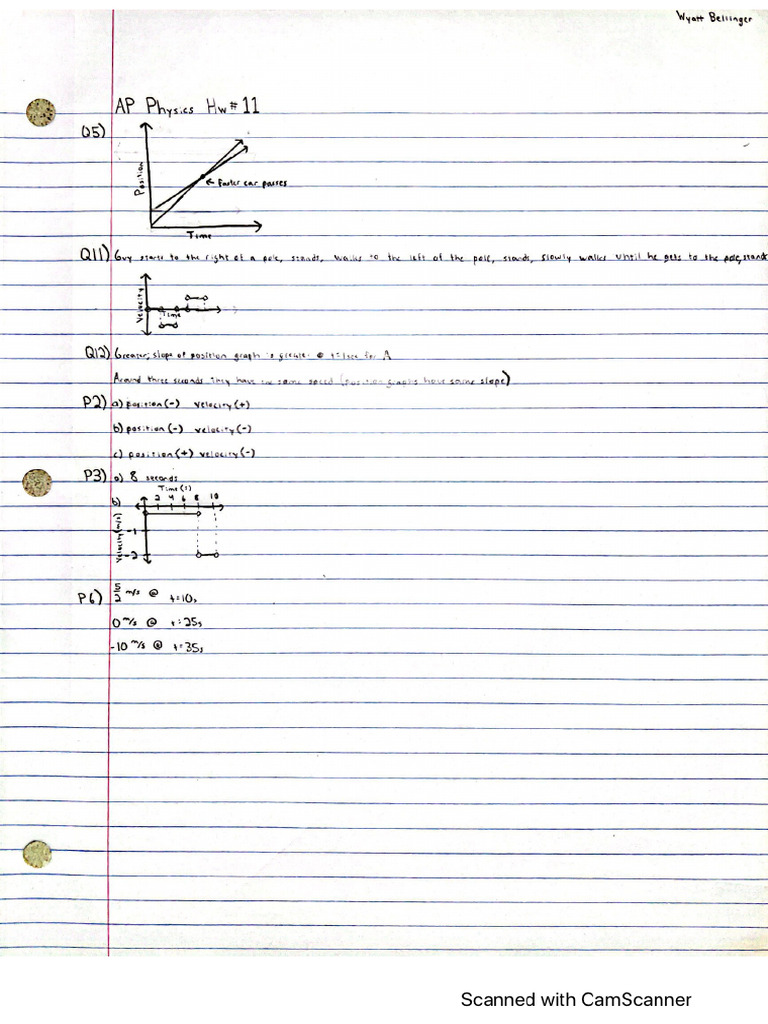 Wyatt Bellinger
AP Physics Hw# 11
Q5)
Position
← Faster car passes
Time
Q11) Guy starts to the right of a pole, stands, walks to the left of the pole, stands, slowly walks until he gets to the pole, stands
Velocity
Time
Q12) Greater; slope of position graph is greater @ t=1sec for A
Around three seconds they have the same speed (position graphs have same slope)
P2) a) position (-) velocity (+)
b) position (-) velocity (-)
c) position (+) velocity (-)
P3) a) 8 seconds
Time (s)
b) 2 4 6 8 10
Velocity (m/s)
-1
-2
P6) 5/2 m/s @ t=10s
0 m/s @ t=25s
-10 m/s @ t=35s
Scanned with CamScanner